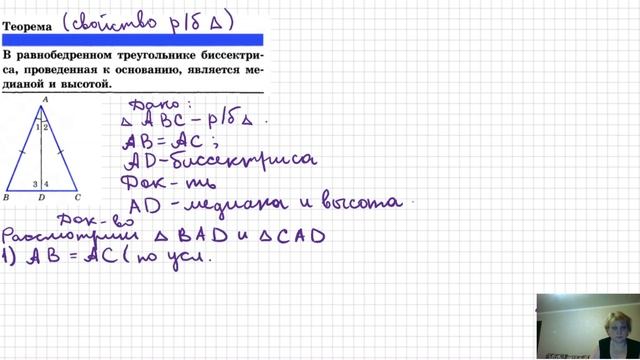 Теорема (свойство р/б Δ)
В равнобедренном треугольнике биссектри-
са, проведенная к основанию, является ме-
дианой и высотой.
A
1 2
3 4
B D C
Дано:
Δ ABC – р/б Δ.
AB = AC;
AD – биссектриса
Док – ть
AD – медиана и высота.
Док – во
Рассмотрим Δ BAD и Δ CAD
1) AB = AC (по усл.